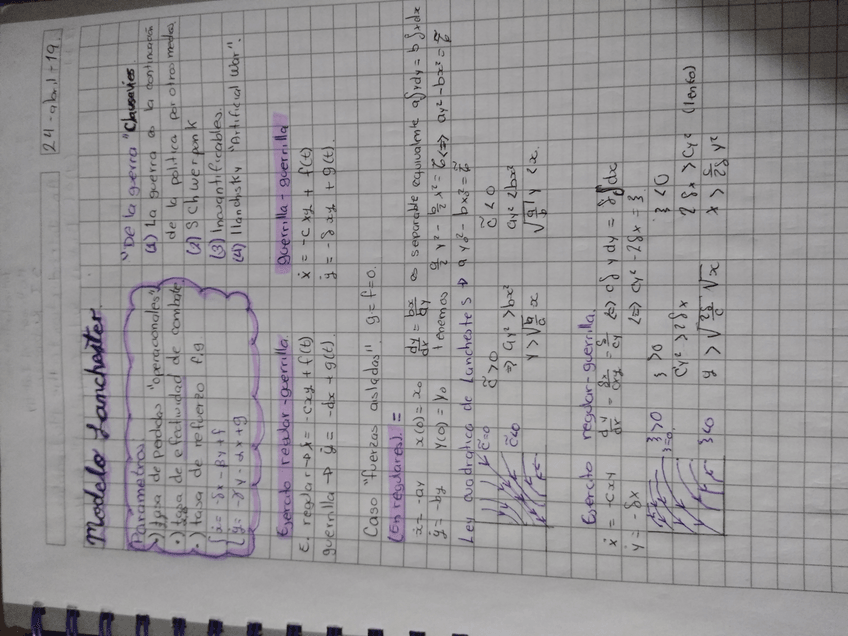 24-abril-19.
Modelo Lanchester.
Parámetros
·) tasa de pérdidas "operacionales"
·) tasa de efectividad de combate
·) tasa de refuerzo f, g
ẋ = -δx - βy + f
ẏ = -γy - αx + g
"De la guerra"
(1) La guerra es la continuación
de la política por otros medios
(2) Schwerpunk
(3) Incuantificables.
(4) Ilanchsky "Artificial War".
Ejército regular-guerrilla.
E. regular → ẋ = -cxy + f(t)
guerrilla → ẏ = -dx + g(t).
guerrilla-guerrilla
ẋ = -cxy + f(t)
ẏ = -δxy + g(t).
Caso "fuerzas aisladas". g=f=0.
(En regulares). =
ẋ = -ay x(0) = x₀
ẏ = -by y(0) = y₀
dy/dx = bx/ay es separable equivalente a∫ydy = b∫xdx
Tenemos a/2 y² - b/2 x² = c̃ <=> ay² - bx² = c̃
Ley cuadrática de Lanchester → ay₀² - bx₀² = c̃
c̃=0
c̃<0
c̃ > 0
=> ay² > bx²
y > √(b/a) x
c̃ < 0
ay² < bx²
√(a/b) y < x.
Ejército regular-guerrilla.
ẋ = -cxy
ẏ = -δx
dy/dx = δx/cxy = δ/cy <=> c∫ydy = δ∫dx
<=> cy² - 2δx = ξ
ξ>0
ξ=0
ξ<0
ξ > 0
cy² > 2δx
y > √(2δ/c) √x
ξ < 0
2δx > cy² (lento)
x > c/2δ y²